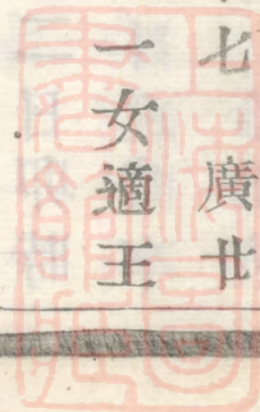 七廣廿
一女適王